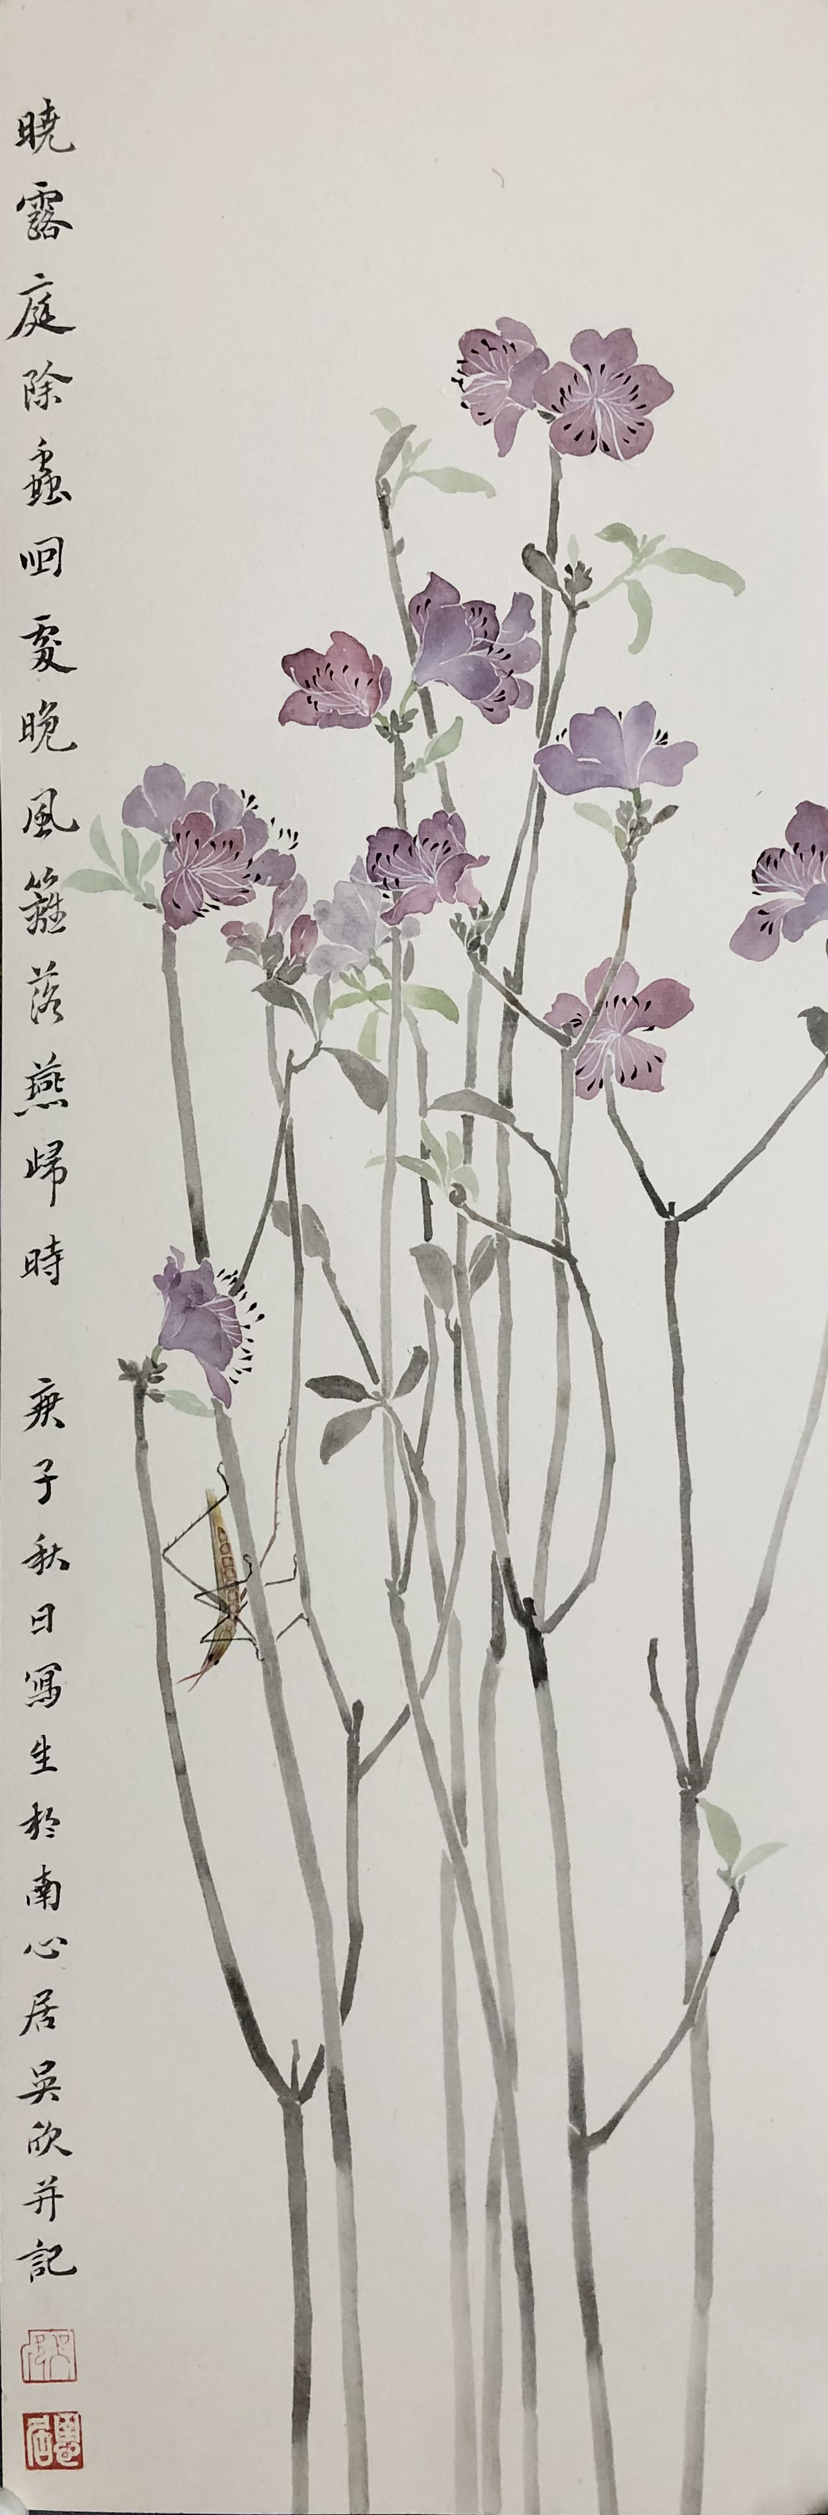 曉露庭除蟲咽處晚風籬落燕歸時 庚子秋日寫生於南心居吳欣并記